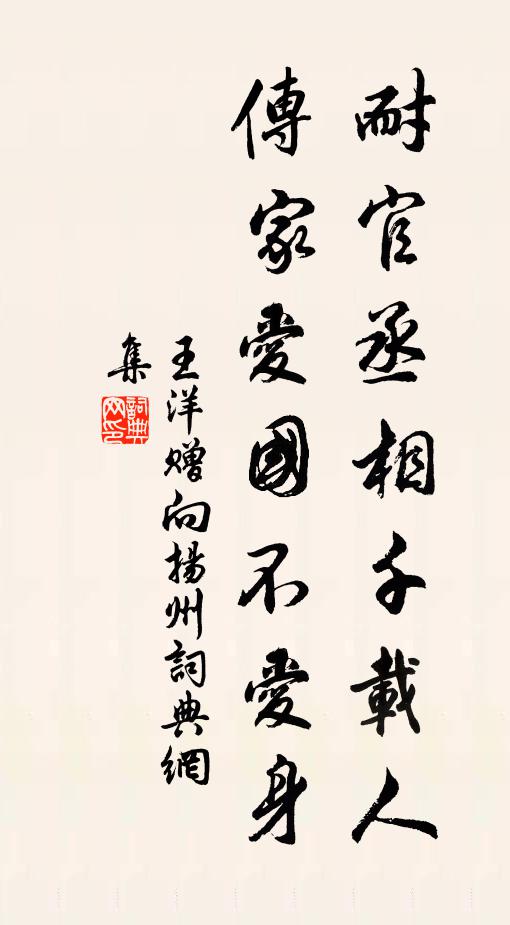 耐官丞相千載人
傳家愛國不愛身
王洋贈向揚州詞典網
集
詞典
网印